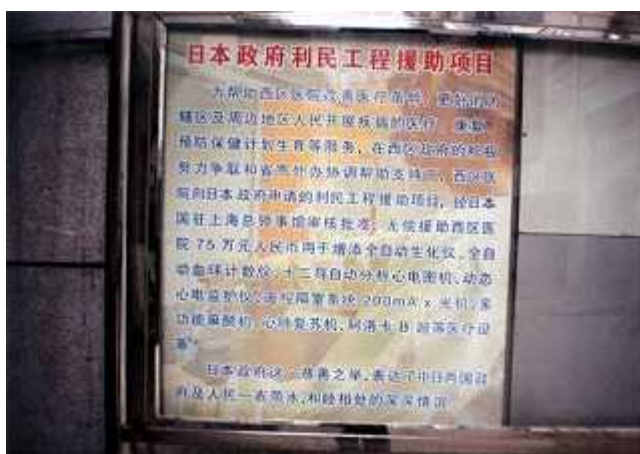 日本政府利民工程援助项目
为帮助西区医院改善医疗条件,更好的为
辖区及周边地区人民开展疾病的医疗、康复、
预防保健计划生育等服务,在西区政府的积极
努力争取和省市外办协调帮助支持下,西区医
院向日本政府申请的利民工程援助项目,经日本
国驻上海总领事馆审核批准:无偿援助西区医
院 75 万元人民币用于增添全自动生化仪、全自
动血球计数仪、十二导自动分析心电图机、动态
心电监护仪、遥控隔室系统 200mA x 光机、多
功能麻醉机、心肺复苏机、阿洛卡 B 超等医疗设
备。
日本政府这一慈善之举,表达了中日两国政
府及人民一衣带水,和睦相处的深深情